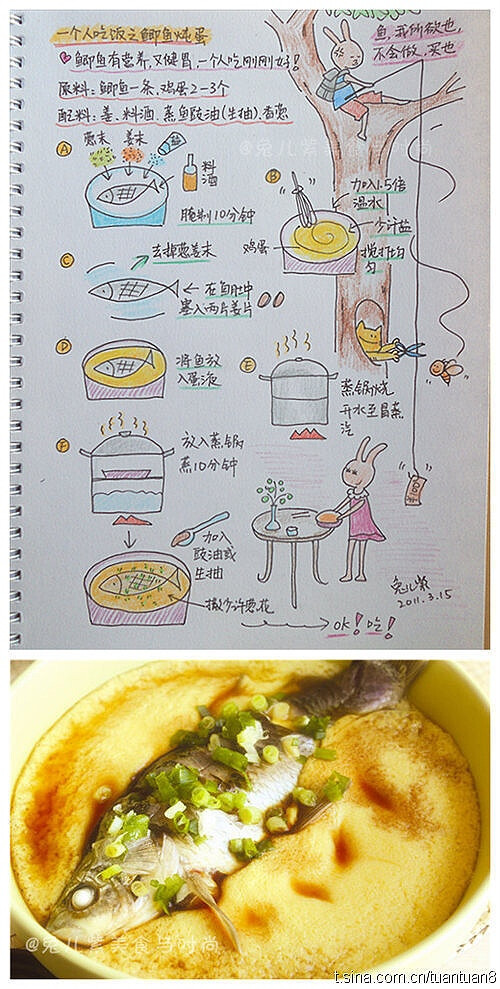 一个人吃饭之鲫鱼炖蛋
鱼,我所欲也,
不会做,买也
鲫鱼有营养,又健胃,一个人吃刚刚好!
原料:鲫鱼一条,鸡蛋2-3个
配料:姜、料酒、蒸鱼豉油(生抽)、香葱
@兔儿紫美食与时尚
A
葱末
姜末
盐
料酒
腌制10分钟
B
加入1.5倍
温水
少许盐
鸡蛋
搅打均
匀
C
去掉葱姜末
在鱼肚中
塞入两片姜片
D
将鱼放
入蛋液
E
蒸锅烧
开水至冒蒸
汽
F
放入蒸锅
蒸10分钟
加入
豉油或
生抽
撒少许葱花
OK!吃!
兔儿紫
2011.3.15
@兔儿紫美食与时尚
t.sina.com.cn/tuantuan8